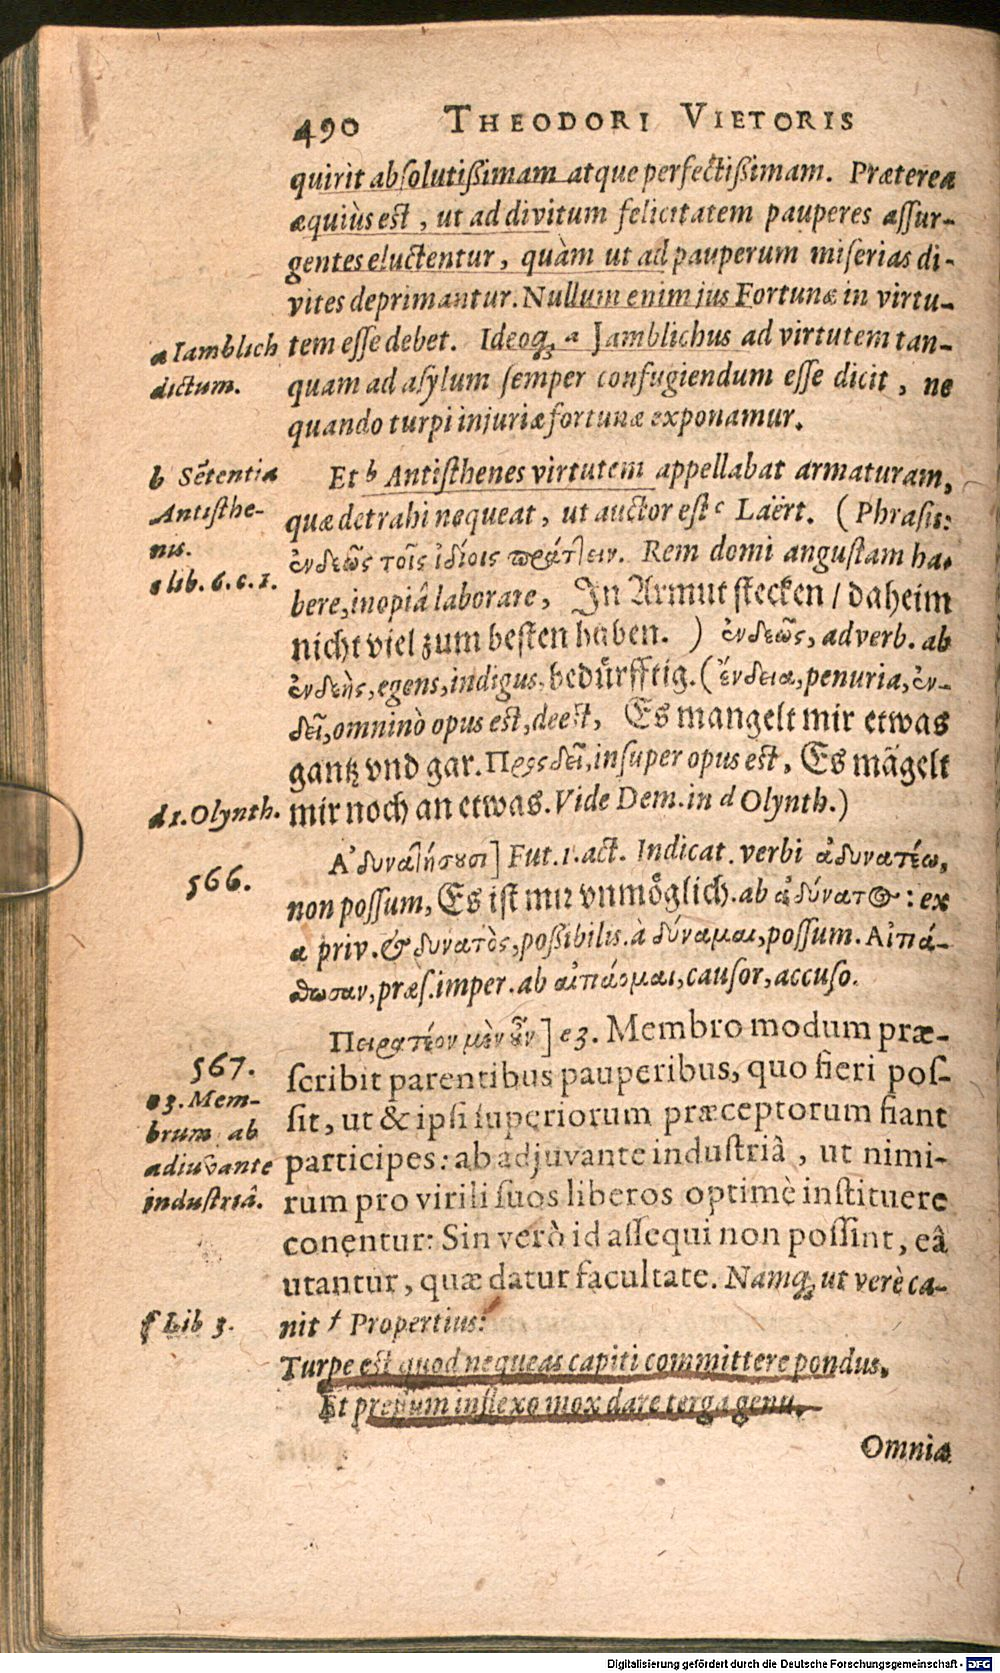 490 THEODORI VIETORIS
quirit absolutißimam atque perfectißimam. Præterea
æquiùs est, ut ad divitum felicitatem pauperes assur-
gentes eluctentur, quàm ut ad pauperum miserias di-
vites deprimantur. Nullum enim jus Fortunæ in virtu-
tem esse debet. Ideoq; a Jamblichus ad virtutem tan-
quam ad asylum semper confugiendum esse dicit, ne
quando turpi injuriæ fortunæ exponamur.
a Iamblich
dictum.
Et b Antisthenes virtutem appellabat armaturam,
quæ detrahi nequeat, ut auctor est c Laërt. (Phrasis:
ἐνδεῶς τοῖς ἰδίοις πράττειν. Rem domi angustam ha-
bere, inopiâ laborare, In Armut stecken / daheim
nicht viel zum besten haben. ) ἐνδεῶς, adverb. ab
ἐνδεὴς, egens, indigus, bedürfftig. (ἔνδεια, penuria, ἐν-
δεῖ, omninò opus est, deest, Es mangelt mir etwas
gantz vnd gar. Προςδεῖ, insuper opus est, Es mãgelt
mir noch an etwas. Vide Dem. in d Olynth.)
b Sẽtentia
Antisthe-
nis.
c lib. 6. c. 1.
d 1. Olynth.
566.
Ἀδυνατήσουσι] Fut. 1. act. Indicat. verbi ἀδυνατέω,
non possum, Es ist mir vnmöglich. ab ἀδύνατος: ex
a priv. & δυνατὸς, poßibilis. à δύναμαι, possum. Αἰτιά-
θωσαν, præs. imper. ab αἰτιάομαι, causor, accuso.
567.
Πειρατέον μὲν οὖν] e 3. Membro modum præ-
scribit parentibus pauperibus, quo fieri pos-
sit, ut & ipsi superiorum præceptorum fiant
participes: ab adjuvante industriâ, ut nimi-
rum pro virili suos liberos optimè instituere
conentur: Sin verò id assequi non possint, eâ
utantur, quæ datur facultate. Namq; ut verè ca-
nit f Propertius:
e 3. Mem-
brum ab
adiuvante
industriâ.
f Lib 3.
Turpe est quod nequeas capiti committere pondus,
Et pressum inflexo mox dare terga genu.
Omnia
Digitalisierung gefördert durch die Deutsche Forschungsgemeinschaft - DFG